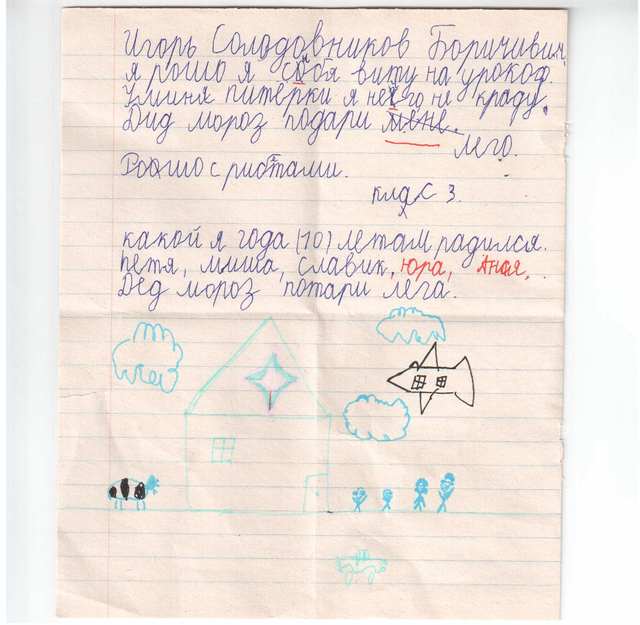 Игорь Солодовников Боричивич
я рошо я собя виту на урокоф.
Уминя питерки я нечго не краду.
Дид мороз подари мене.
лего.
Роошо с риотами.
клас 3.
какой я года (10) летам радился.
петя, миша, славик, юра, Аноя,
Дед мороз потари лега.